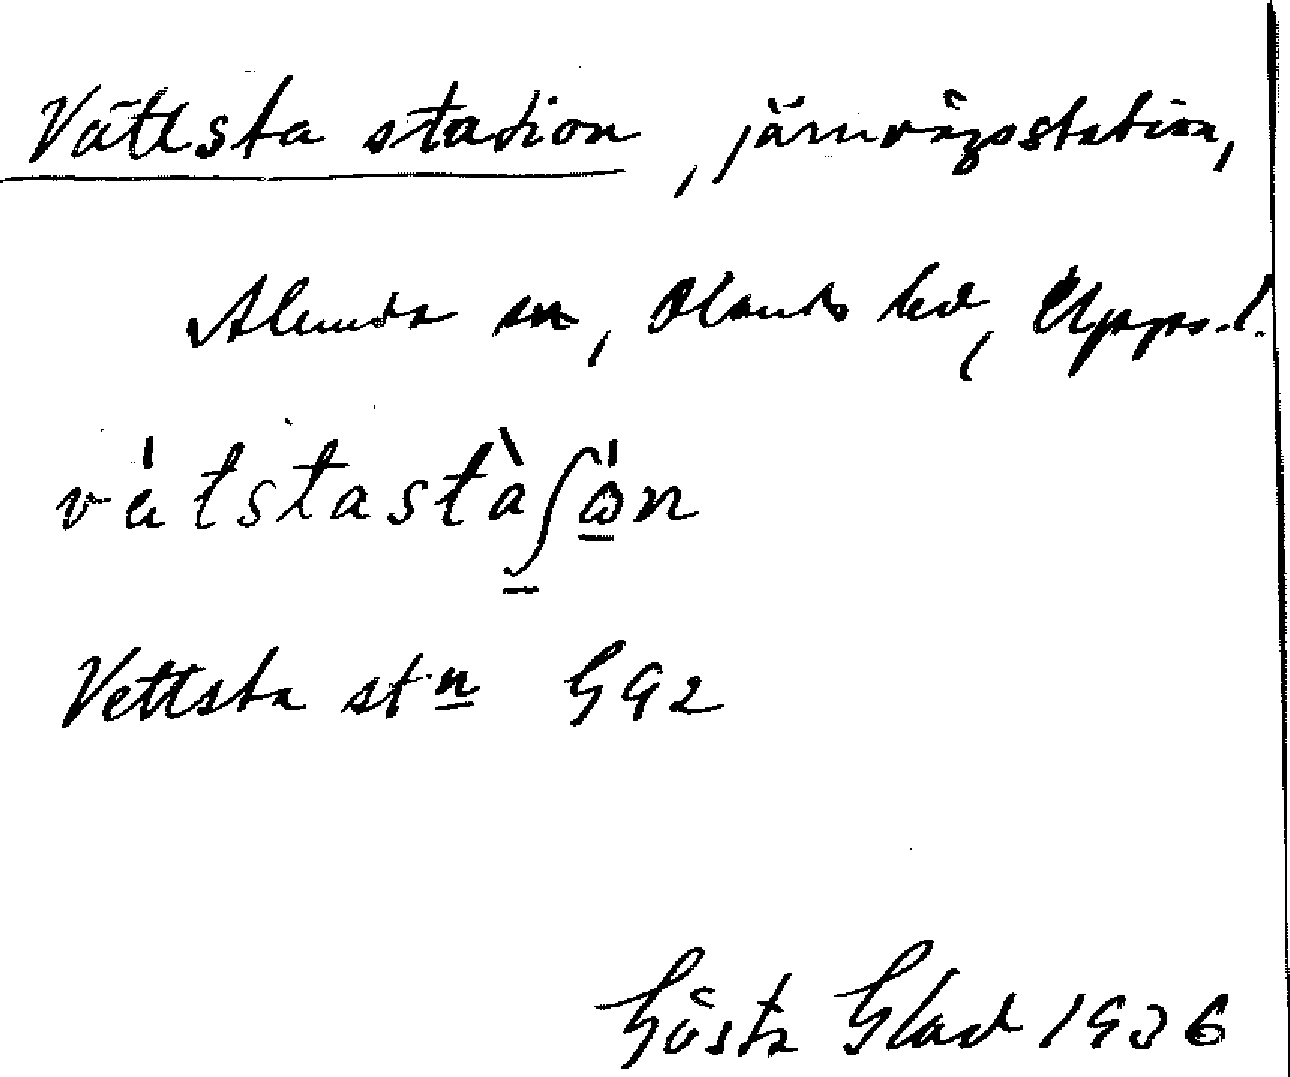 Vättsta station, järnvägsstation,
Alunda sn, Olands hd, Upps. l.
vä́tstastàʃω̈n
Vettsta stn G92
Gösta Glad 1936